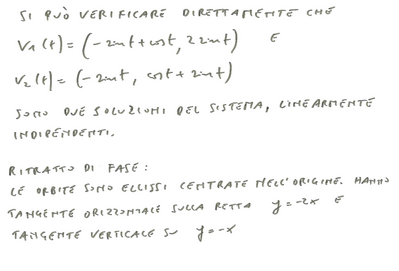 SI PUÒ VERIFICARE DIRETTAMENTE CHE
V₁(t) = (-sint + cost, 2sint) E
V₂(t) = (-sint, cost + sint)
SONO DUE SOLUZIONI DEL SISTEMA, LINEARMENTE
INDIPENDENTI.
RITRATTO DI FASE:
LE ORBITE SONO ELLISSI CENTRATE NELL'ORIGINE. HANNO
TANGENTE ORIZZONTALE SULLA RETTA y=-2x E
TANGENTE VERTICALE SU y=-x